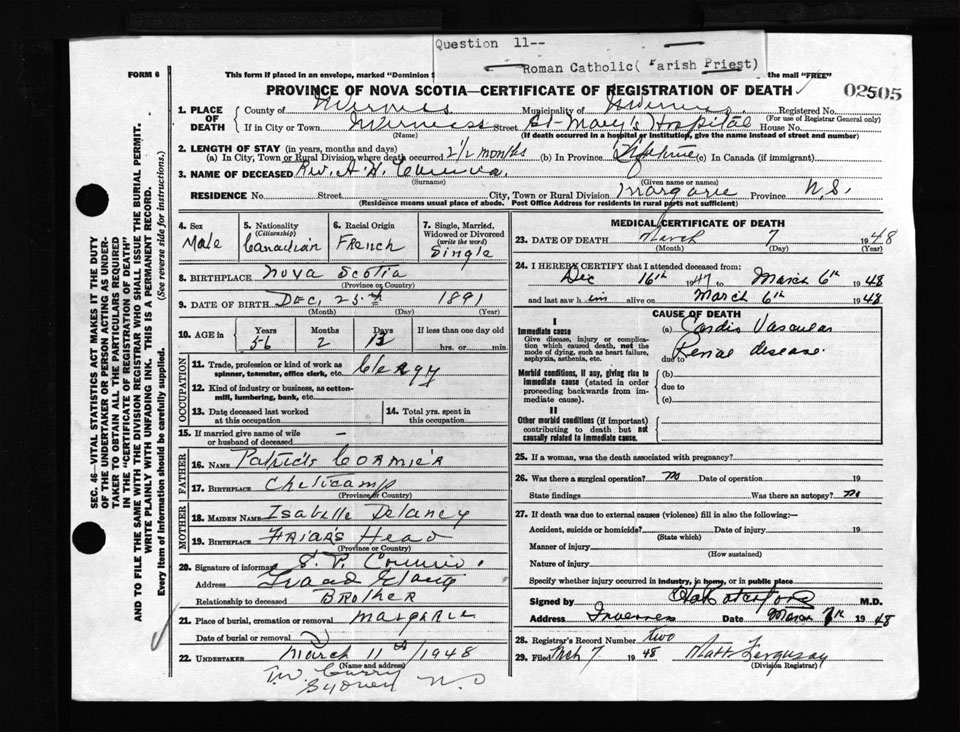 Question 11--
Roman Catholic( Parish Priest)
FORM 6
This form if placed in an envelope, marked "Dominion S
the mail "FREE"
PROVINCE OF NOVA SCOTIA—CERTIFICATE OF REGISTRATION OF DEATH
02505
1. PLACE OF DEATH
County of Inverness Municipality of Inverness Registered No.
(For use of Registrar General only)
If in City or Town Inverness Street St. Mary's Hospital House No.
(Name) (If death occurred in a hospital or institution, give the name instead of street and number)
2. LENGTH OF STAY (in years, months and days)
(a) In City, Town or Rural Division where death occurred 2 1/2 months (b) In Province Lifetime (c) In Canada (if immigrant)
3. NAME OF DECEASED Rev. A. H. Cormier
(Surname) (Given name or names)
RESIDENCE No. Street City, Town or Rural Division Margaree Province N.S.
(Residence means usual place of abode. Post Office Address for residents in rural parts not sufficient)
4. Sex
Male
5. Nationality
(Citizenship)
Canadian
6. Racial Origin
French
7. Single, Married,
Widowed or Divorced
(write the word)
Single
8. BIRTHPLACE Nova Scotia
(Province or Country)
9. DATE OF BIRTH Dec. 25th 1891
(Month) (Day) (Year)
10. AGE in
Years
56
Months
2
Days
13
If less than one day old
hrs. or min.
OCCUPATION
11. Trade, profession or kind of work as
spinner, teamster, office clerk, etc. Clergy
12. Kind of industry or business, as cotton-
mill, lumbering, bank, etc.
13. Date deceased last worked
at this occupation
14. Total yrs. spent in
this occupation
15. If married give name of wife —
or husband of deceased
FATHER
16. NAME Patrick Cormier
17. BIRTHPLACE Cheticamp
(Province or Country)
MOTHER
18. MAIDEN NAME Isabelle Delaney
19. BIRTHPLACE Friars Head
(Province or Country)
20. Signature of informant S. P. Cormier
Address Grand Etang
Relationship to deceased Brother
21. Place of burial, cremation or removal Margaree
Date of burial or removal
March 11th 1948
22. UNDERTAKER
(Name and address)
T.W. Curry
Sydney N.S
MEDICAL CERTIFICATE OF DEATH
23. DATE OF DEATH March 7 1948
(Month) (Day) (Year)
24. I HEREBY CERTIFY that I attended deceased from:
Dec 16th 1947 to March 6th 1948
and last saw him alive on March 6th 1948
CAUSE OF DEATH
I
Immediate cause
Give disease, injury or complica-
tion which caused death, not the
mode of dying, such as heart failure,
asphyxia, asthenia, etc.
(a) Cardio Vascular
due to Renal disease.
Morbid conditions, if any, giving rise to
immediate cause (stated in order
proceeding backwards from im-
mediate cause).
(b)
due to
(c)
II
Other morbid conditions (if important)
contributing to death but not
causally related to immediate cause.
25. If a woman, was the death associated with pregnancy?
26. Was there a surgical operation? no Date of operation 19
State findings Was there an autopsy? no
27. If death was due to external causes (violence) fill in also the following:—
Accident, suicide or homicide? Date of injury 19
(State which)
Manner of injury
(How sustained)
Nature of injury
Specify whether injury occurred in industry, in home, or in public place
Signed by M.D.
Address Inverness Date March 7th 1948
28. Registrar's Record Number two
29. Filed Mch 7 1948 Matt Ferguson
(Division Registrar)
SEC. 46—VITAL STATISTICS ACT MAKES IT THE DUTY
OF THE UNDERTAKER OR PERSON ACTING AS UNDER-
TAKER TO OBTAIN ALL THE PARTICULARS REQUIRED
IN THE "CERTIFICATE OF REGISTRATION OF DEATH"
AND TO FILE THE SAME WITH THE DIVISION REGISTRAR WHO SHALL ISSUE THE BURIAL PERMIT.
WRITE PLAINLY WITH UNFADING INK. THIS IS A PERMANENT RECORD.
Every item of information should be carefully supplied. (See reverse side for instructions.)